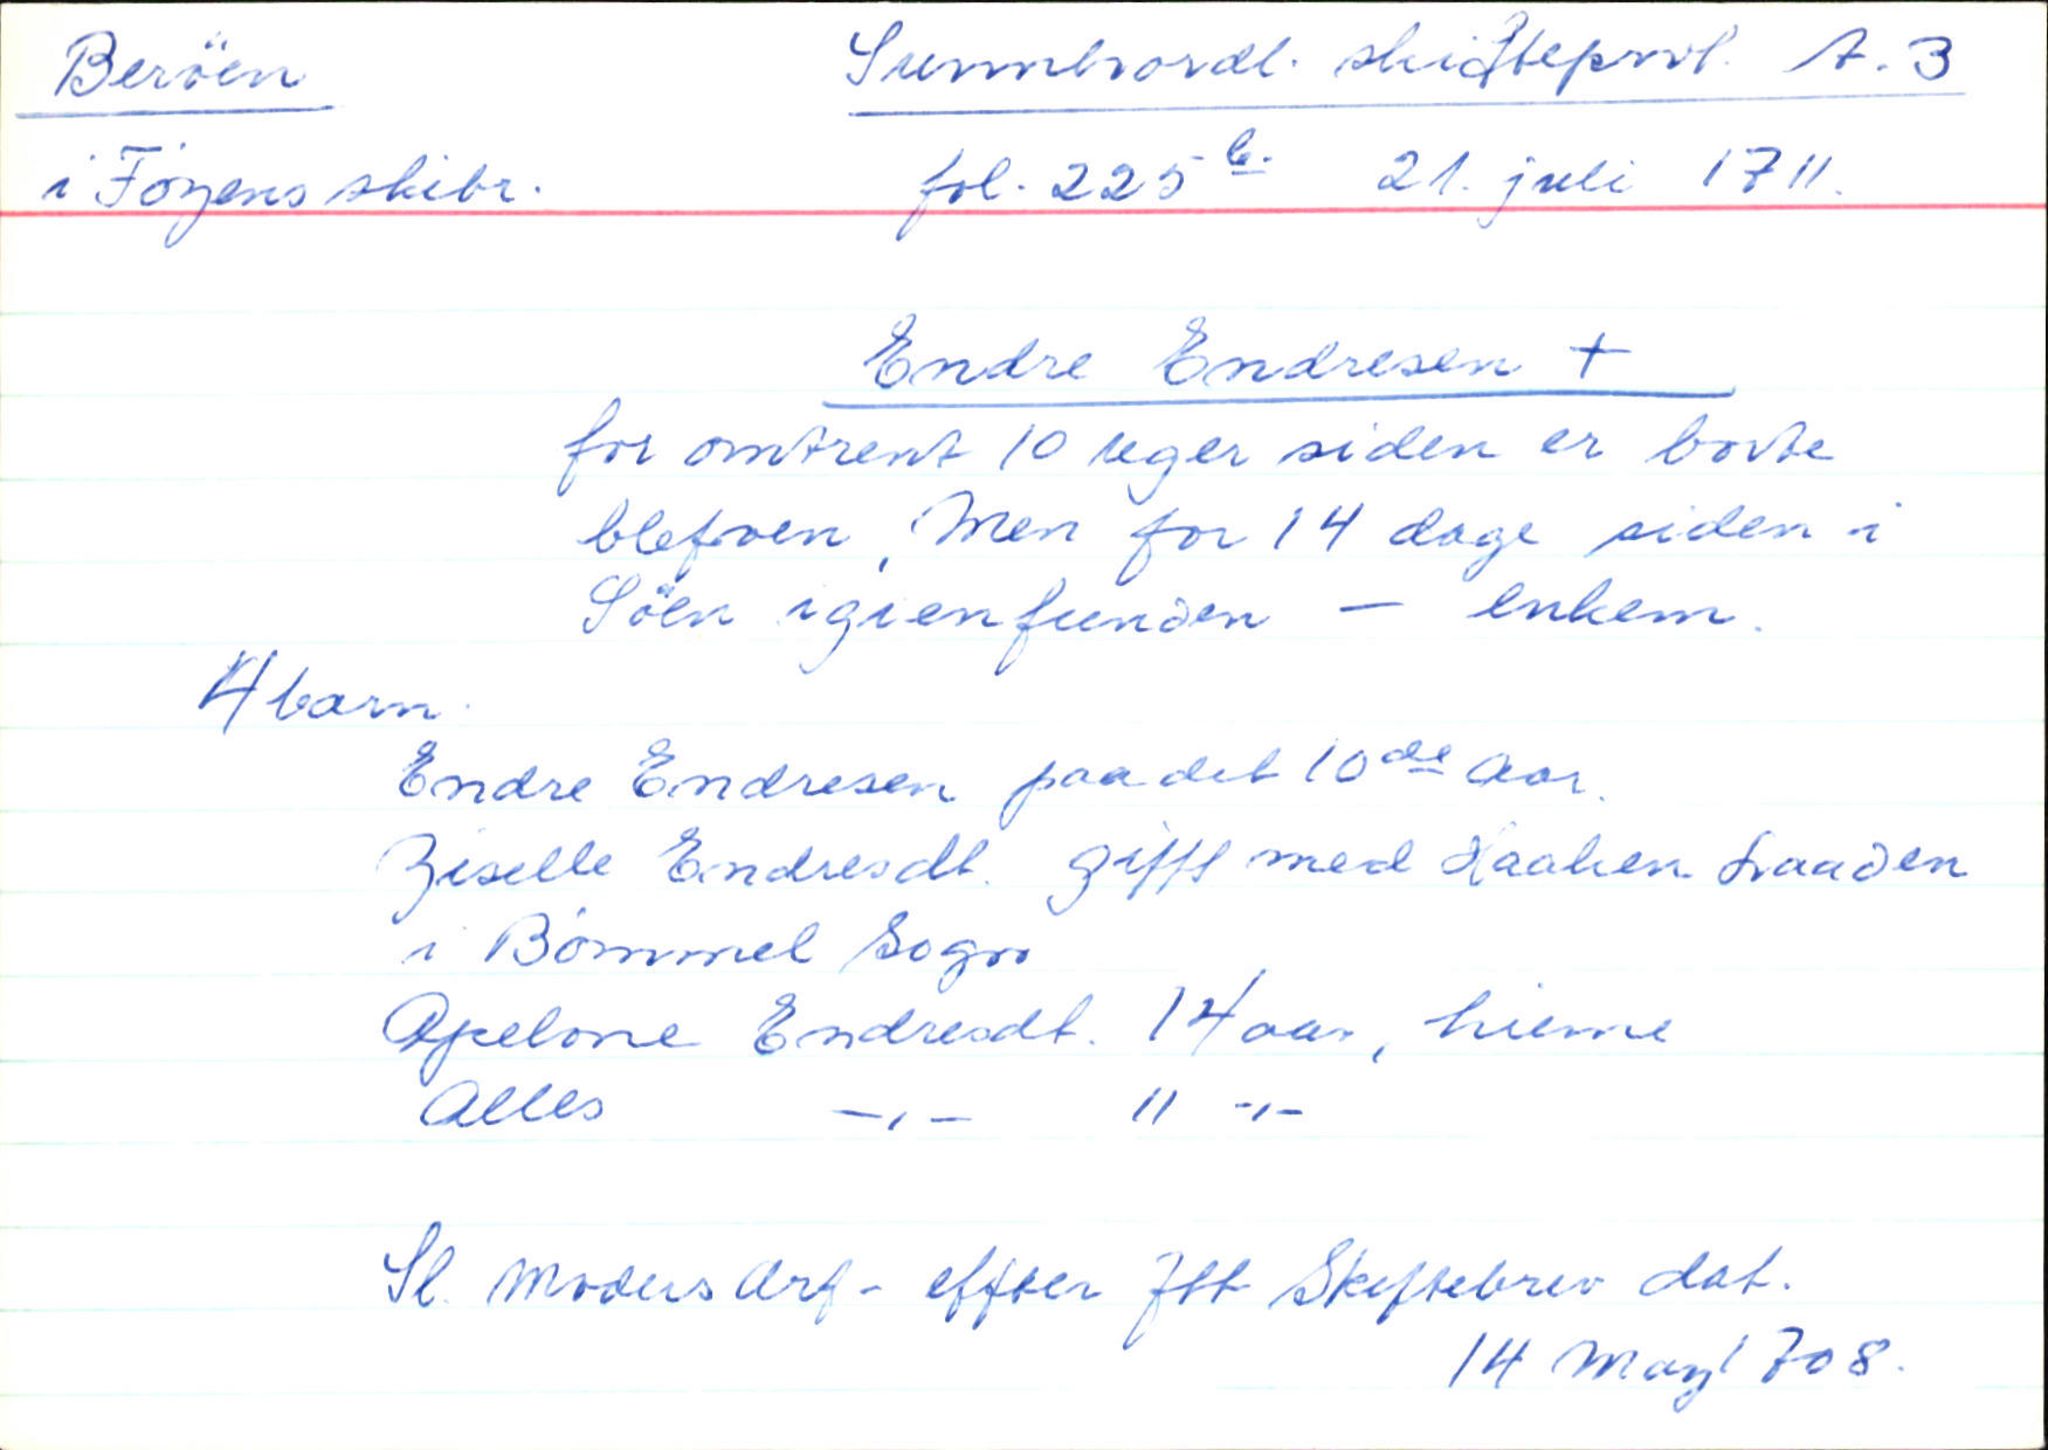 Beröen
Sunnhordl. skifteprot. A. 3
i Föyens skibr.
fol. 225 b. 21. juli 1711.
Endre Endresen +
for omtrent 10 uger siden er borte
blefven, Men for 14 dage siden i
Söen igienfunden — enkem.
4 barn.
Endre Endresen paa det 10de Aar.
Ziselle Endresdt. gifft med Haaken Laaden
i Bömmel Sogn
Apelone Endresdt. 14 aar, hieme
Alles -,- 11 -,-
Sl. Moders Arf - effter Itt Skiftebrev dat.
14 May 1708.